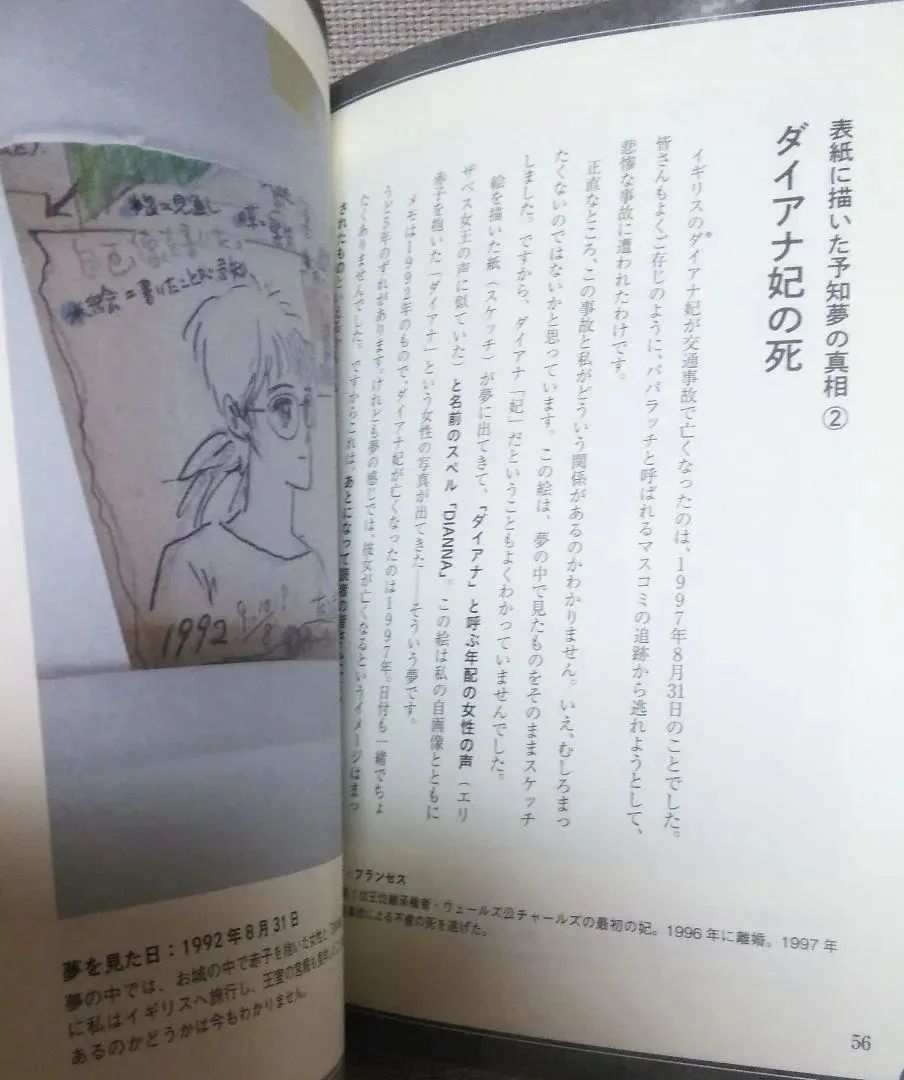 表紙に描いた予知夢の真相②
ダイアナ妃の死
イギリスのダイアナ妃が交通事故で亡くなったのは、1997年8月31日のことでした。
皆さんもよくご存じのように、パパラッチと呼ばれるマスコミの追跡から逃れようとして、
悲惨な事故に遭われたわけです。
正直なところ、この事故と私がどういう関係があるのかわかりません。いえ、むしろまっ
たくないのではないかと思っています。この絵は、夢の中で見たものをそのままスケッチ
しました。ですから、ダイアナ「妃」だということもよくわかっていませんでした。
絵を描いた紙（スケッチ）が夢に出てきて、「ダイアナ」と呼ぶ年配の女性の声（エリ
ザベス女王の声に似ていた）と名前のスペル「DIANNA」。この絵は私の自画像とともに
赤子を抱いた「ダイアナ」という女性の写真が出てきた――そういう夢です。
メモは1992年のもので、ダイアナ妃が亡くなったのは1997年。日付も一緒でちょ
うど5年のずれがあります。けれども夢の感じでは、彼女が亡くなるというイメージはまっ
たくありませんでした。ですからこれは、あとになって読者の
されたものといえる
フランセス
位王位継承権者・ウェールズ公チャールズの最初の妃。1996年に離婚。1997年
事故による不慮の死を遂げた。
56
自画像を書いた。
1992
夢を見た日：1992年8月31日
夢の中では、お城の中で赤子を抱いた女性と
に私はイギリスへ旅行し、王室の宮殿も
あるのかどうかは今もわかりません。